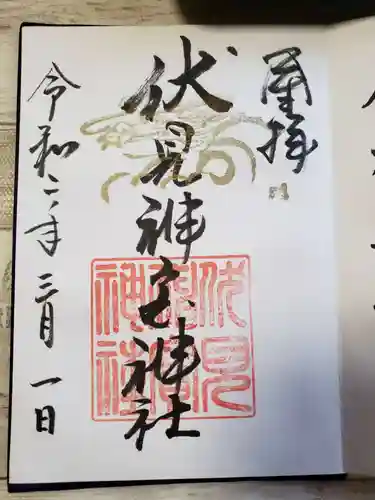 拝
伏見神宝神社
令和二年三月一日
伏見
神社